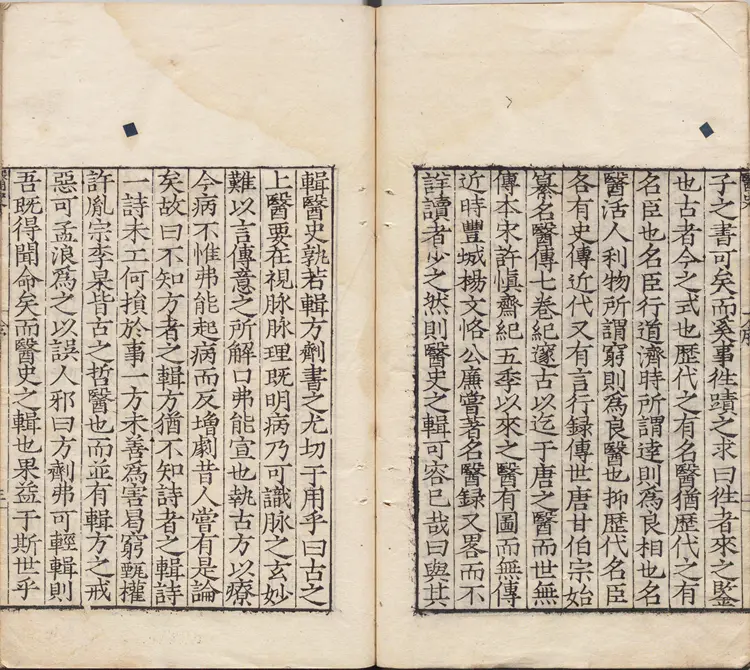 子之書可矣而奚事徃蹟之求曰徃者來之鑒
也古者今之式也歷代之有名醫猶歷代之有
名臣也名臣行道濟時所謂達則為良相也名
醫活人利物所謂窮則為良醫也抑歷代名臣
各有史傳近代又有言行録傳世唐甘伯宗始
纂名醫傳七巻紀邃古以迄于唐之醫而世無
傳本宋許慎齋紀五季以來之醫有圖而無傳
近時豐城楊文恪公廉嘗著名醫録又畧而不
詳讀者少之然則醫史之輯可容已哉曰與其
輯醫史孰若輯方劑書之尤切于用乎曰古之
上醫要在視脉脉理既明病乃可識脉之玄妙
難以言傳意之所解口弗能宣也執古方以療
今病不惟弗能起病而反增劇昔人嘗有是論
矣故曰不知方者之輯方猶不知詩者之輯詩
一詩未工何損於事一方未善為害曷窮甄權
許胤宗李杲皆古之哲醫也而並有輯方之戒
惡可孟浪為之以誤人邪曰方劑弗可輕輯則
吾既得聞命矣而醫史之輯也果益于斯世乎